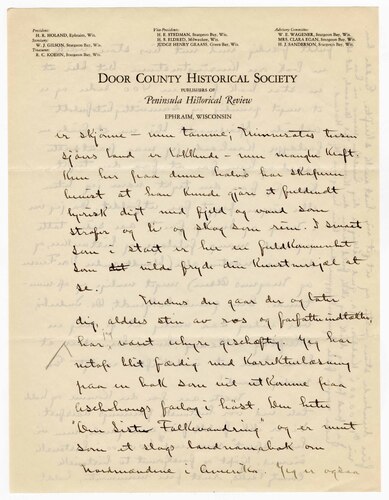 President:
H. R. HOLAND, Ephraim, Wis.
Secretary:
W. J. GILSON, Sturgeon Bay, Wis.
Treasurer:
R. C. KOEHN, Sturgeon Bay, Wis.
Vice-Presidents:
H. E. STEDMAN, Sturgeon Bay, Wis.
H. S. ELDRED, Milwaukee, Wis.
JUDGE HENRY GRAASS, Green Bay, Wis.
Advisory Committee:
W. E. WAGENER, Sturgeon Bay, Wis.
MRS. CLARA EGAN, Sturgeon Bay, Wis.
H. J. SANDERSON, Sturgeon Bay, Wis.
DOOR COUNTY HISTORICAL SOCIETY
PUBLISHERS OF
Peninsula Historical Review
EPHRAIM, WISCONSIN
er skjønne — men tamme; Minnesotas tusin
sjøers land er lokkende — men mangler kraft.
Kun her paa denne halvø har skaperen
at han kunde gjøre et fuldendt
lyrisk digt med fjeld og vand som
strofer og li og skog som rim. I smaat
som i stort er her en
som det vilde fryde din kunstnersjæl at
se.
Medens du gaar der og later
dig, aldeles sten av ros og
har jeg vært uhyre geschæftig. Jeg har
netop blit færdig med Korrekturlæsning
paa en bok som vil utkomme fraa
Aschehougs forlag i høst. Den heter
"Den Siste Folkevandring" og er ment
som et slags landnamabok om
Nordmændene i Amerika. Jeg er ogsaa